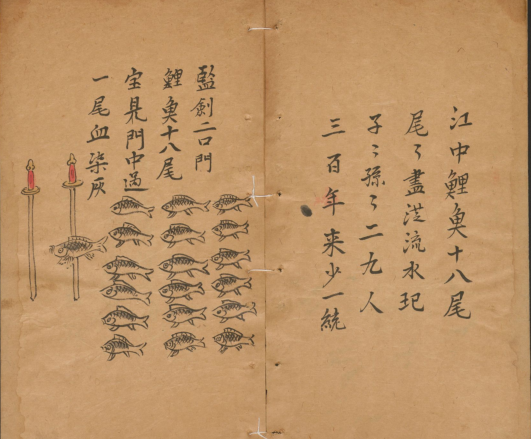 江中鯉魚十八尾
尾〻盡從流水玘
子〻孫〻二九人
三百年来少一統
監劍二口門
鯉魚十八尾
宝是門中過
一尾血染灰